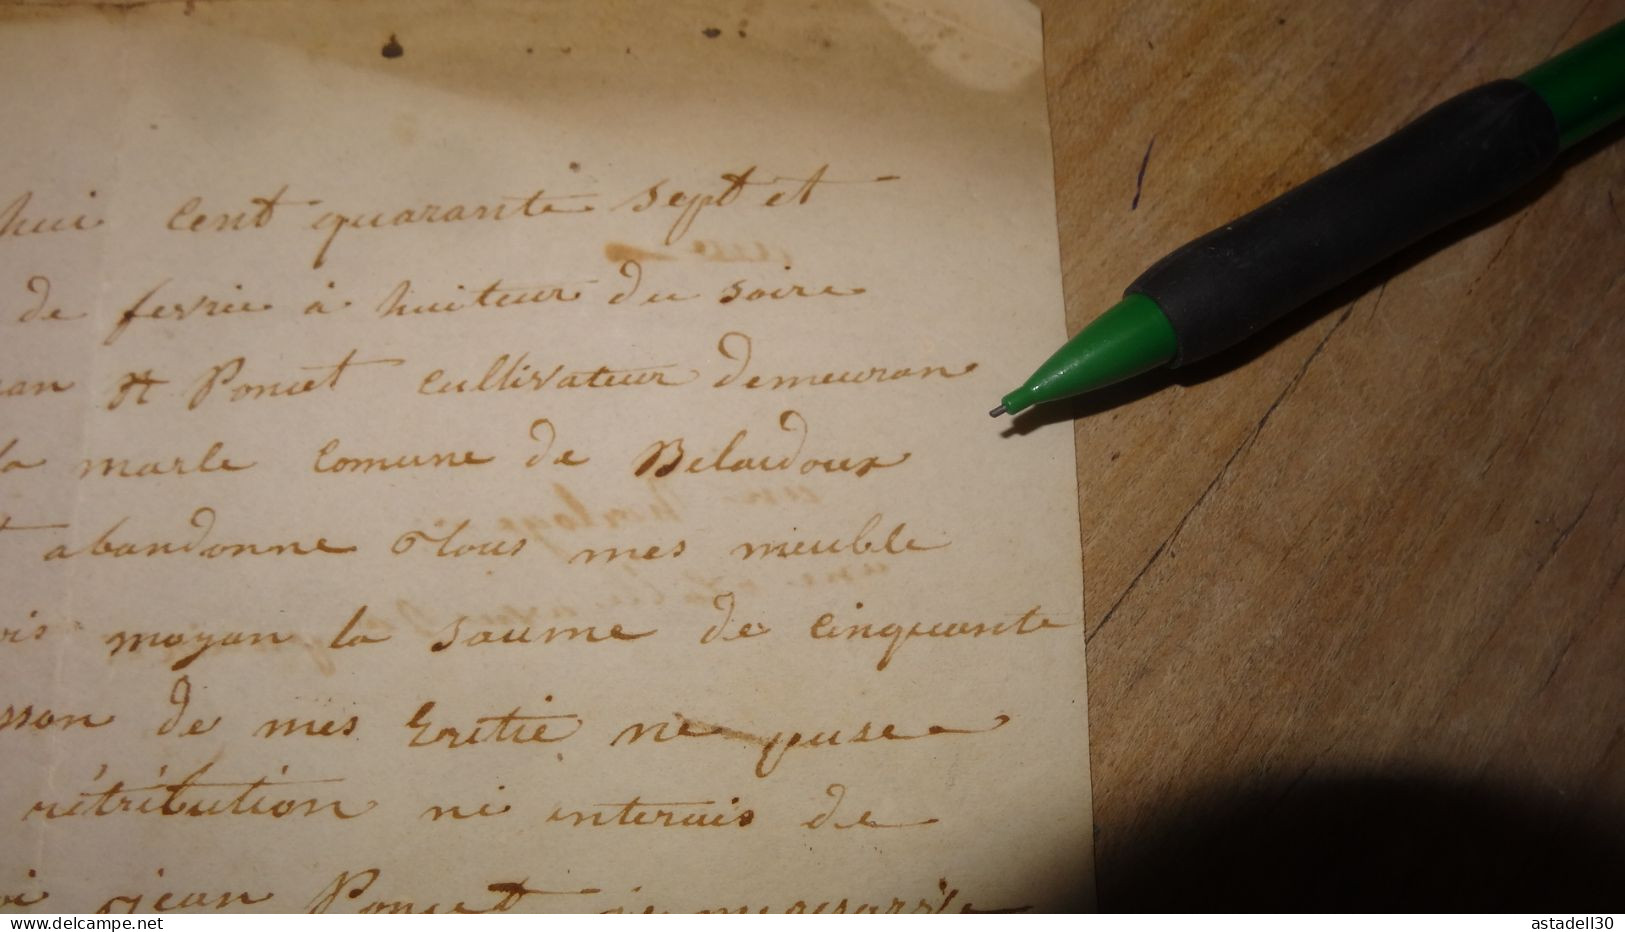 hui cent quarante sept et
de fevrie à huiteur du soire
ean Poncet cultivateur demeuran
la marle comune de Belardoux
t abandonne tous mes meuble
ois moyan la saume de cinquante
sson de mes Eritié ne puse
rétribution ni interais de
oi jean Poncet
astadell30